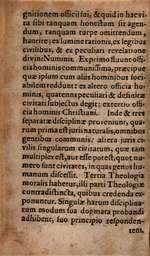 gnitionem officii sui, & quid in haeresi
ta sibi tanquam honestum sit agendum,
dum, tanquam turpe omittendum,
haurire; ex luminerationis, ex legibus
civilibus, & ex peculiari revelatione
divini Numinis. Exprimo futuri officia
hominis communissima, praecipue
quae ipsum cum aliis hominibus sociabilem
reddunt: ex altero officia hominis,
quatenus peculiari & definita
civitati subjectus degit; ex tertio officia
hominis Christiani. Inde & tres
separatae disciplinae proveniunt, quarum
prima est juris naturalis, omnibus
gentibus communis: altera juris civilis
singularum civitatum, quae tam
multiplex est, aut esse potest, quot numero
sunt civitates, in quas genus humanum
discessit. Tertia Theologia
moralis habetur, illi parti Theologiae
contradistincta, quibus credenda exponuntur.
Singulae harum disciplinarum
modum sua dogmata probandi
adhibent, suo principio respondentem.